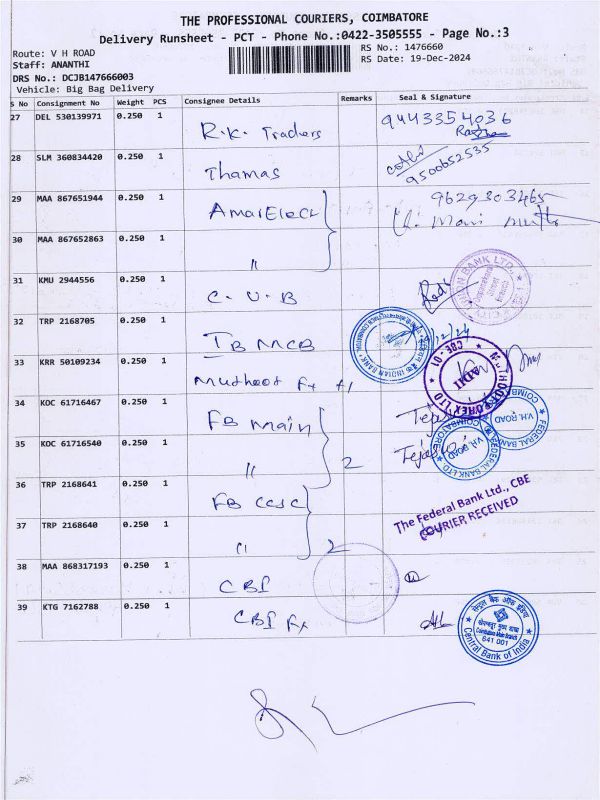 THE PROFESSIONAL COURIERS, COIMBATORE
Delivery Runsheet - PCT - Phone No.:0422-3505555 - Page No.:3
Route: V H ROAD
RS No.: 1476660
Staff: ANANTHI
RS Date: 19-Dec-2024
DRS No.: DCJB147666003
Vehicle: Big Bag Delivery
S No Consignment No Weight PCS Consignee Details Remarks Seal & Signature
27 DEL 530139971 0.250 1 R.K. Traders 9443354036
28 SLM 360834420 0.250 1 Thamas 9500652535
29 MAA 867651944 0.250 1 AmarElect 9629303465
30 MAA 867652863 0.250 1 "
31 KMU 2944556 0.250 1 C.U.B
32 TRP 2168705 0.250 1 IB MCB
33 KRR 50109234 0.250 1 Mutheet Fx
34 KOC 61716467 0.250 1 FB Main
35 KOC 61716540 0.250 1 " 2
36 TRP 2168641 0.250 1 FB CCSC
37 TRP 2168640 0.250 1 " 2
38 MAA 868317193 0.250 1 CBI
39 KTG 7162788 0.250 1 CBI Fx
CITY UNION BANK LTD.
INDIAN BANK
MUTHOOT FOREX LTD
CBE-01
ADII
FEDERAL BANK LTD.
V.H. ROAD
COIMBATORE
FEDERAL BANK LTD.
V.H. ROAD
COIMBATORE
The Federal Bank Ltd., CBE
COURIER RECEIVED
सेन्ट्रल बैंक ऑफ इंडिया
Coimbatore Main Branch
641 001
Central Bank of India